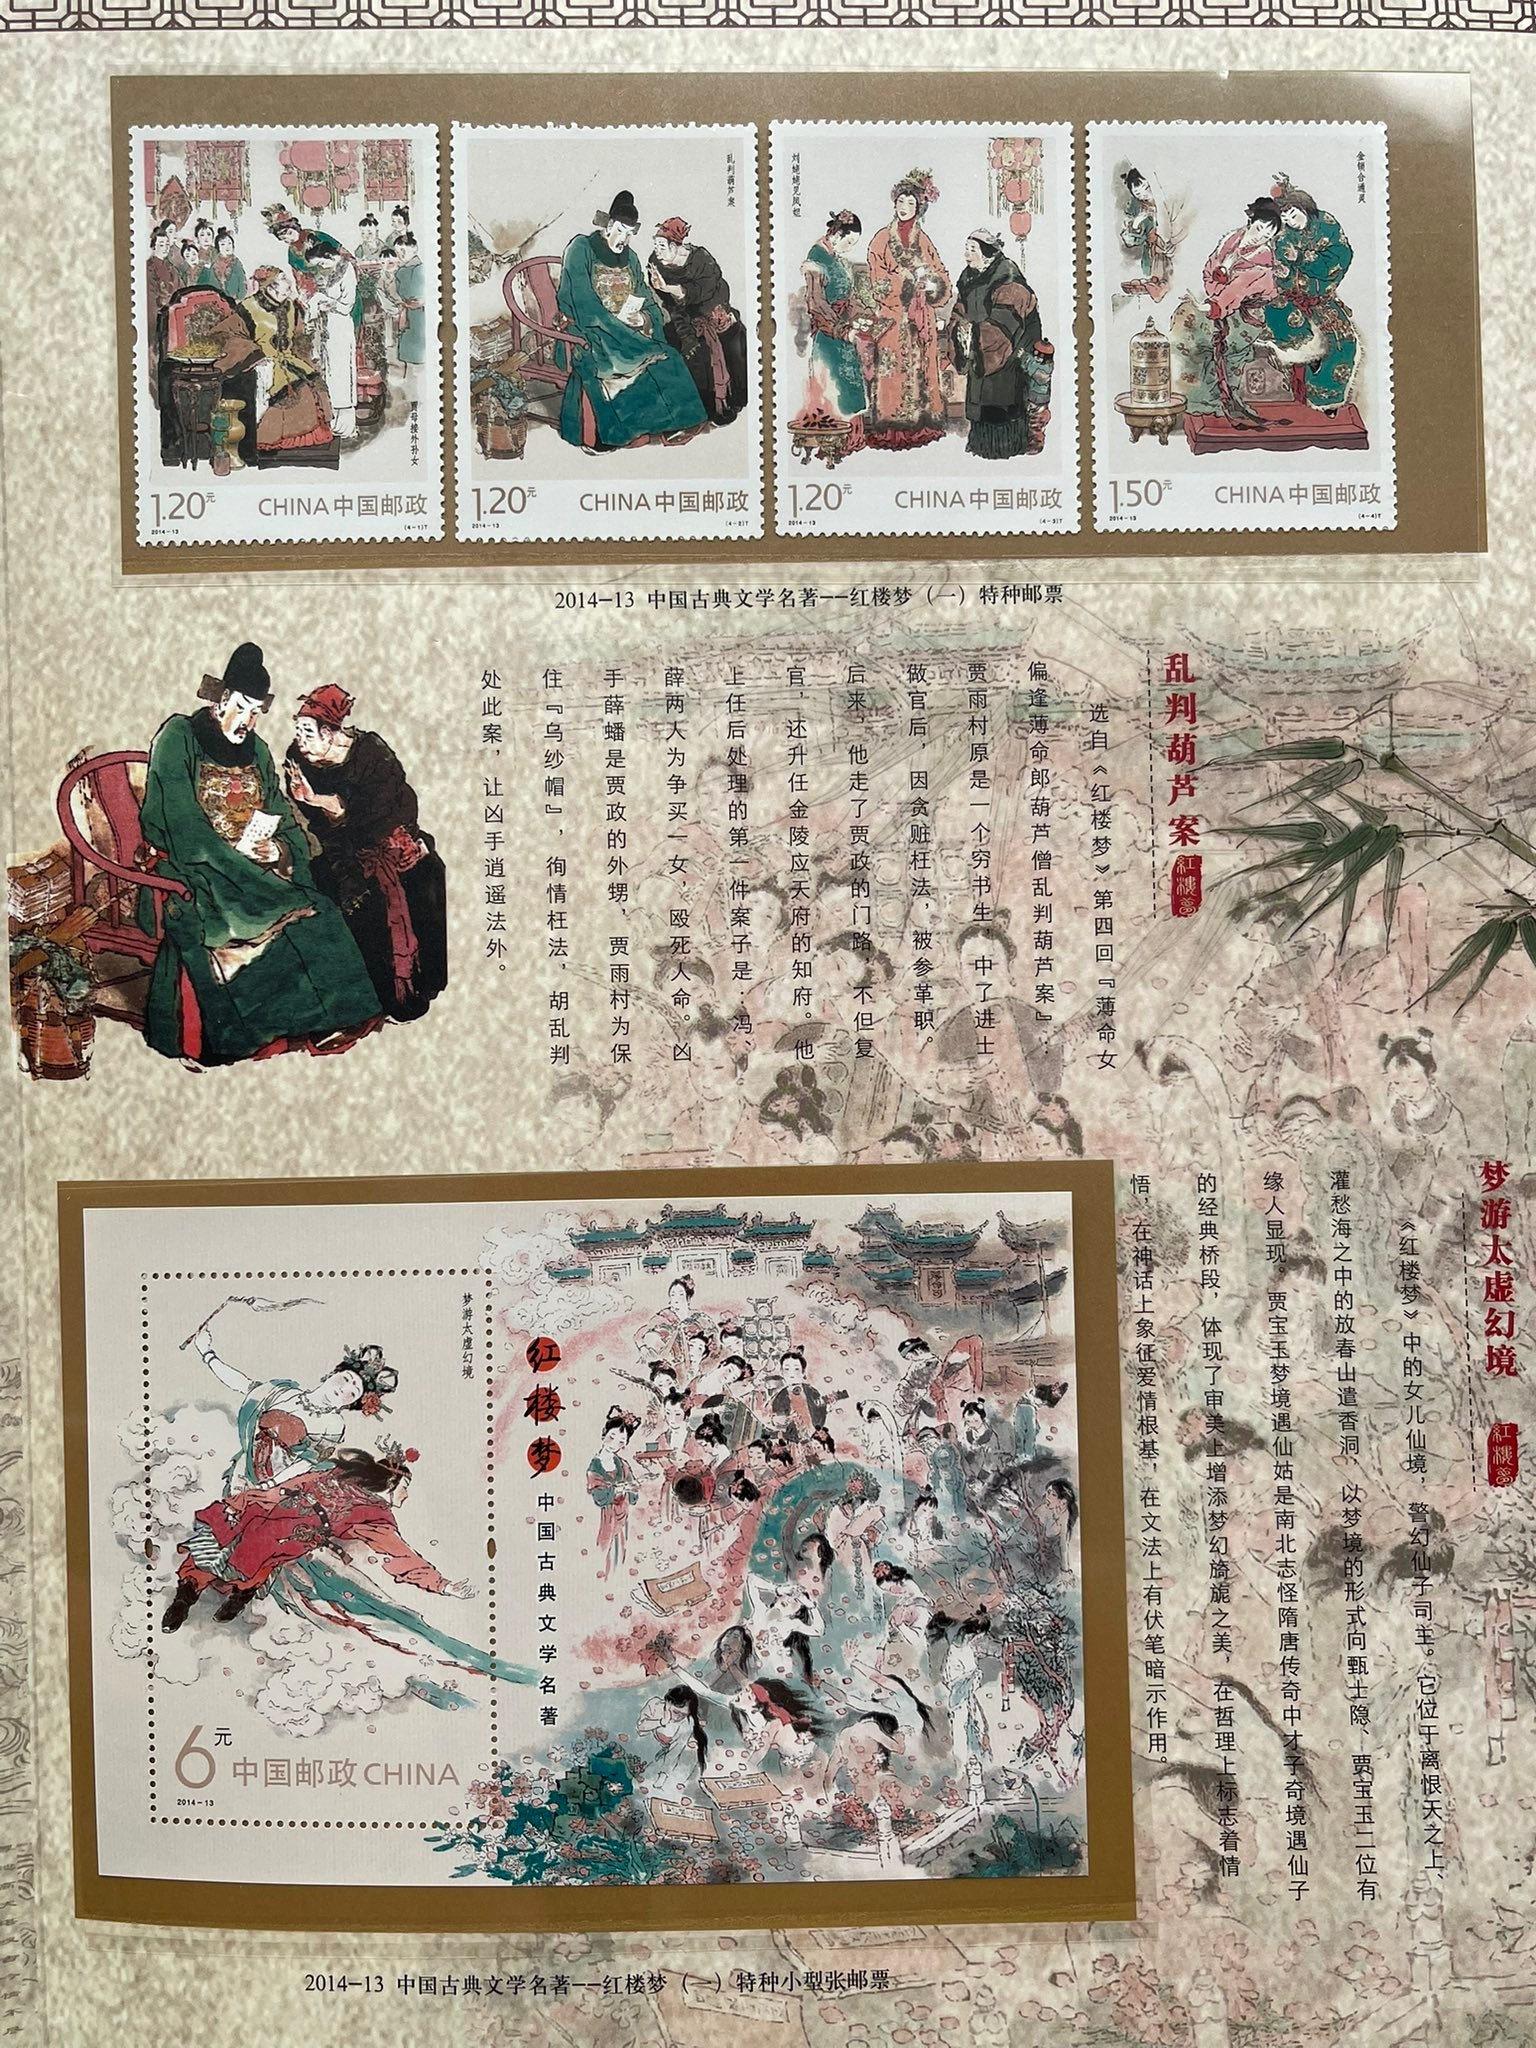 贾母接外孙女
1.20元
CHINA中国邮政
2014-13
(4-1)T
乱判葫芦案
1.20元
CHINA中国邮政
2014-13
(4-2)T
刘姥姥见凤姐
1.20元
CHINA中国邮政
2014-13
(4-3)T
金锁合通灵
1.50元
CHINA中国邮政
2014-13
(4-4)T
2014-13 中国古典文学名著--红楼梦（一）特种邮票
乱判葫芦案
红楼梦
选自《红楼梦》第四回『薄命女
偏逢薄命郎葫芦僧乱判葫芦案』：
贾雨村原是一个穷书生，中了进士
做官后，因贪赃枉法，被参革职。
后来，他走了贾政的门路，不但复
官，还升任金陵应天府的知府。他
上任后处理的第一件案子是：冯、
薛两人为争买一女，殴死人命。凶
手薛蟠是贾政的外甥，贾雨村为保
住『乌纱帽』，徇情枉法，胡乱判
处此案，让凶手逍遥法外。
梦游太虚幻境
红楼梦
《红楼梦》中的女儿仙境，警幻仙子司主。它位于离恨天之上、
灌愁海之中的放春山遣香洞，以梦境的形式向甄士隐、贾宝玉二位有
缘人显现。贾宝玉梦境遇仙姑是南北志怪隋唐传奇中才子奇境遇仙子
的经典桥段，体现了审美上增添梦幻旖旎之美，在哲理上标志着情
悟，在神话上象征爱情根基，在文法上有伏笔暗示作用。
梦游太虚幻境
红楼梦
中国古典文学名著
6元
中国邮政CHINA
2014-13
T
2014-13 中国古典文学名著--红楼梦（一）特种小型张邮票